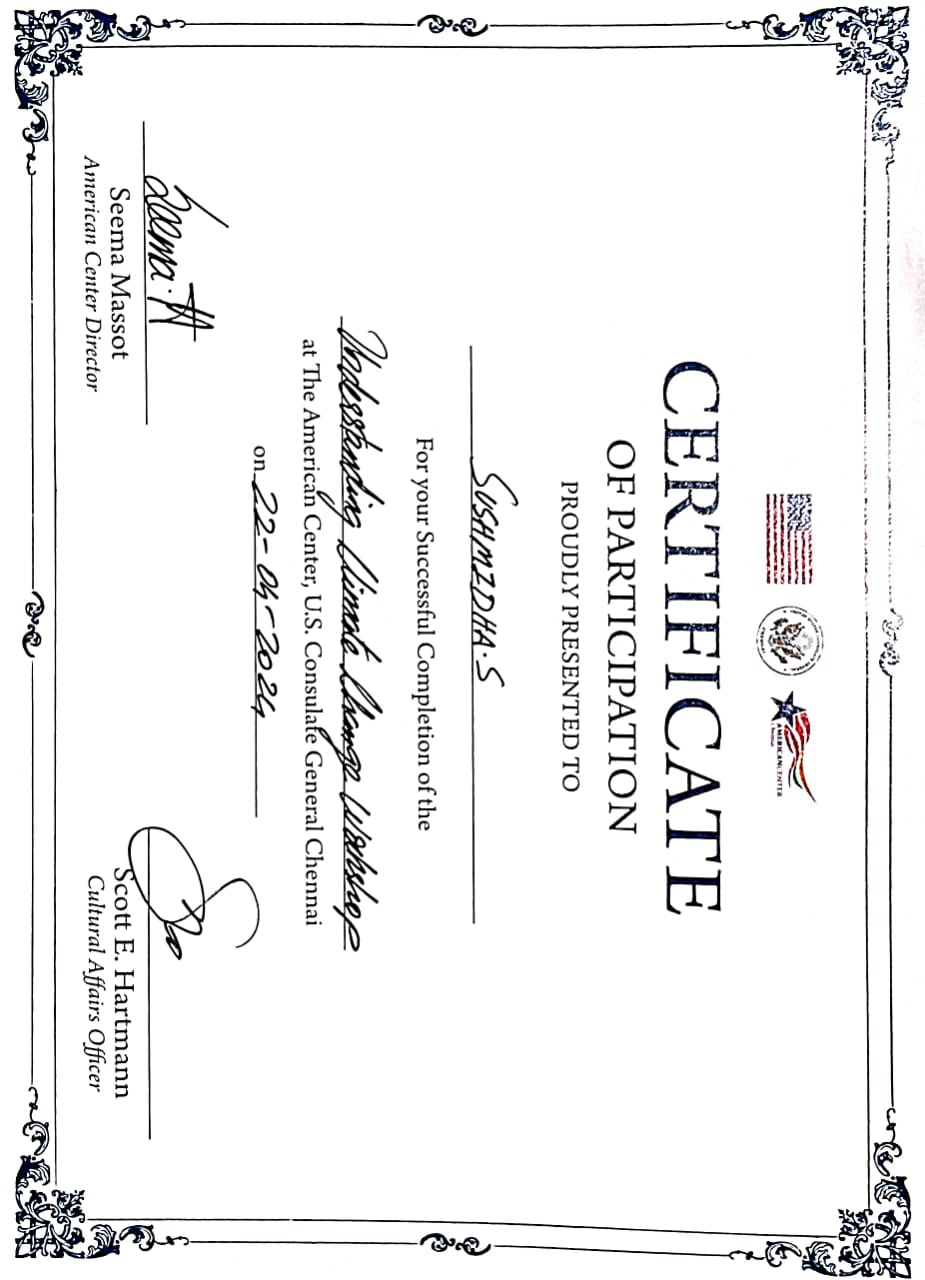 AMERICAN CENTER
CERTIFICATE
OF PARTICIPATION
PROUDLY PRESENTED TO
SUSHMIDHA.S
For your Successful Completion of the
Understanding Climate Change Workshop
at The American Center, U.S. Consulate General Chennai
on 22-04-2024
Seema Massot
American Center Director
Scott E. Hartmann
Cultural Affairs Officer